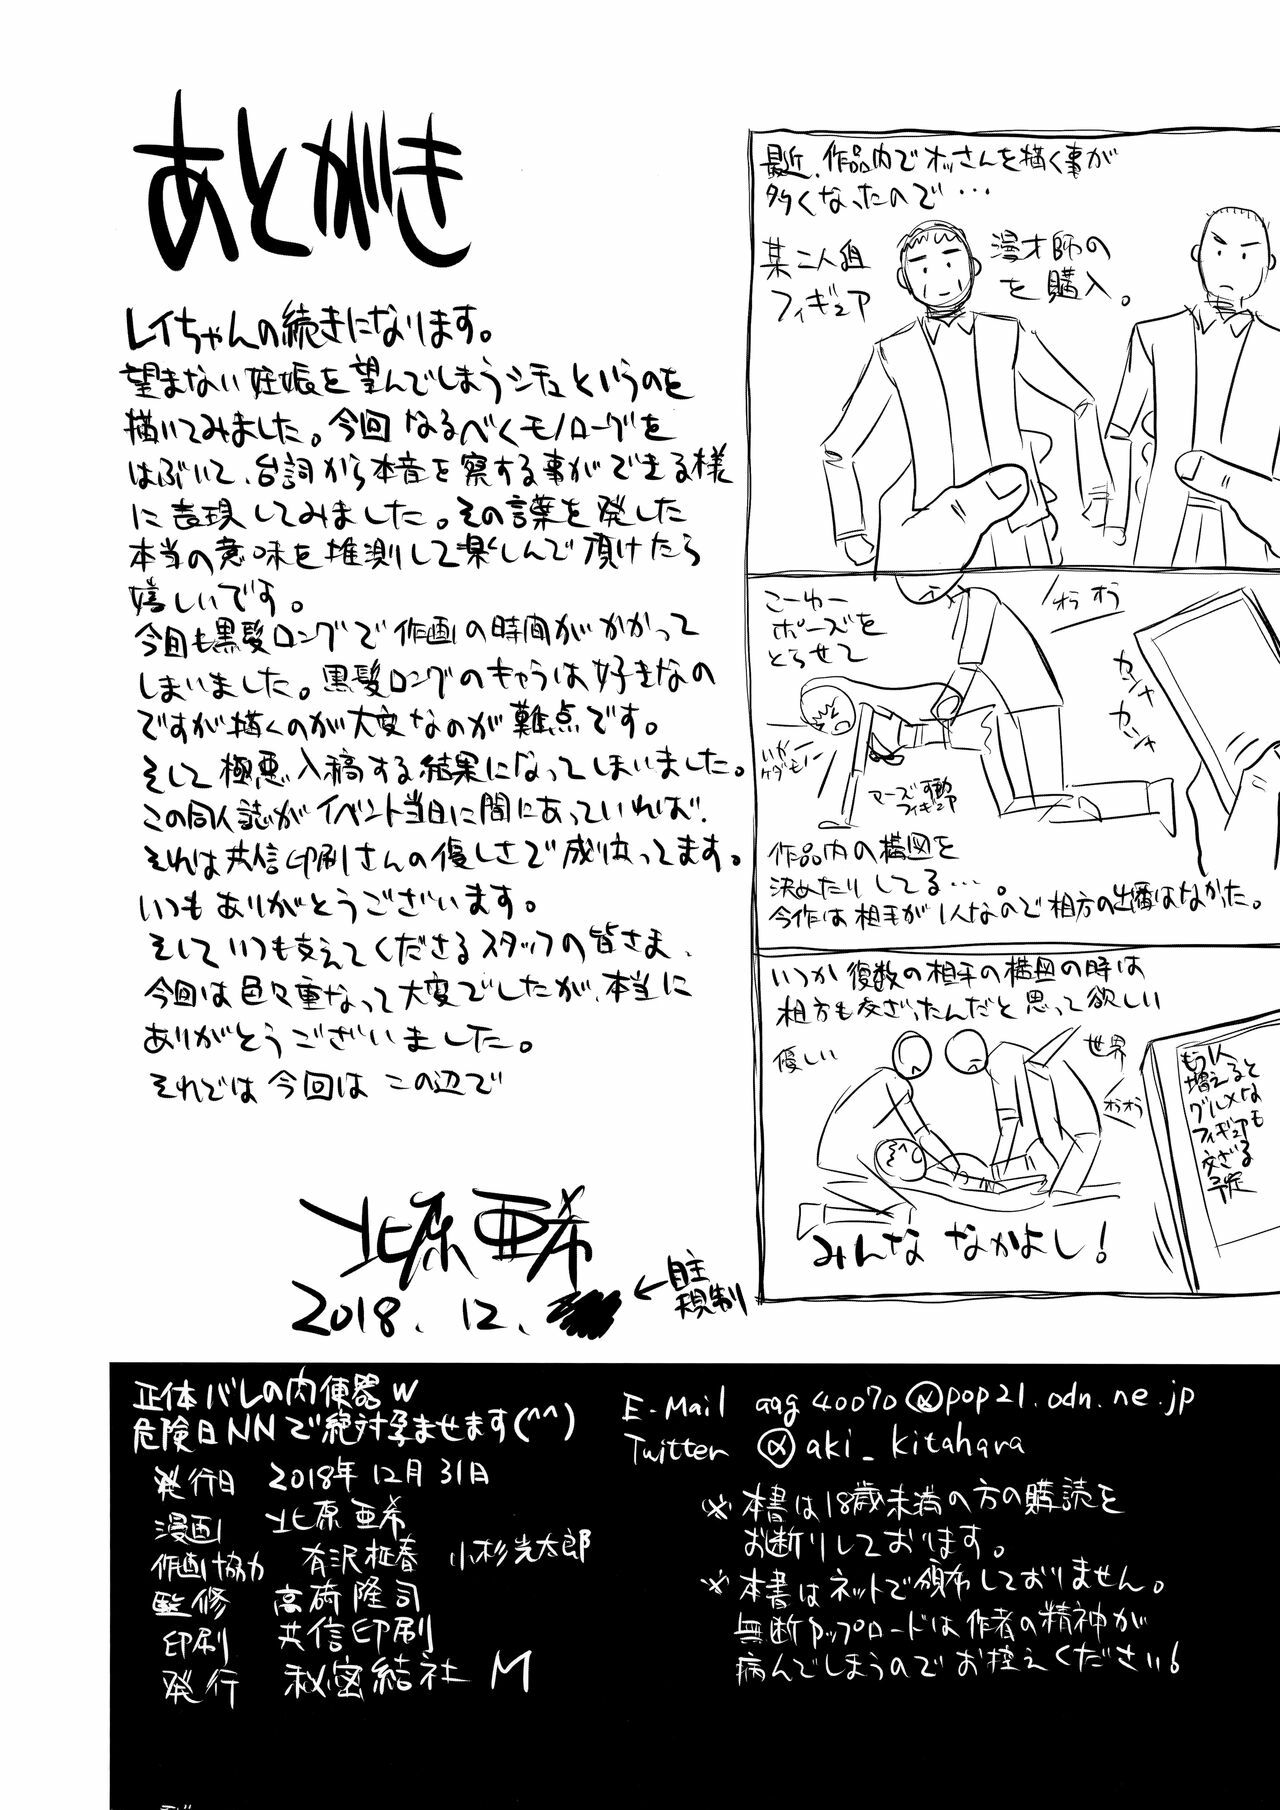 あとがき
レイちゃんの続きになります。
望まない妊娠を望んでしまうシチュというのを
描いてみました。今回なるべくモノローグを
はぶいて、台詞から本音を察する事ができる様
に表現してみました。その言葉を発した
本当の意味を推測して楽しんで頂けたら
嬉しいです。
今回も黒髪ロングで作画の時間がかかって
しまいました。黒髪ロングのキャラは好きなの
ですが描くのが大変なのが難点です。
そして極悪入稿する結果になってしまいました。
この同人誌がイベント当日に間にあっていれば、
それは共信印刷さんの優しさで成り立ってます。
いつもありがとうございます。
そしていつも支えてくださるスタッフの皆さま、
今回は色々重なって大変でしたが、本当に
ありがとうございました。
それでは今回はこの辺で
北原亜希
2018.12.
←自主
規制
最近、作品内でオッさんを描く事が
多くなったので・・・
某二人組
漫才師の
フィギュア
を購入。
こーゆー
ポーズを
とらせて
オラオラ
カシャ
カシャ
いやー
ケダモノー
可動
フィギュア
作品内の構図を
決めたりしてる・・・。
今作は相手が1人なので相方の出番はなかった。
いつか複数の相手の構図の時は
相方も交ざったんだと思って欲しい
優しい
世界
オラオラ
もう1人
増えると
グルメな
フィギュアも
交ざる
予定
みんななかよし!
正体バレの肉便器w
危険日NNで絶対孕ませます(^^)
発行日 2018年12月31日
漫画 北原亜希
作画協力 有沢柾春 小杉光太郎
監修 高崎隆司
印刷 共信印刷
発行 秘密結社M
E-Mail aag40070@pop21.odn.ne.jp
Twitter @aki_kitahara
※本書は18歳未満の方の購読を
お断りしております。
※本書はネットで頒布しておりません。
無断アップロードは作者の精神が
病んでしまうのでお控えください!